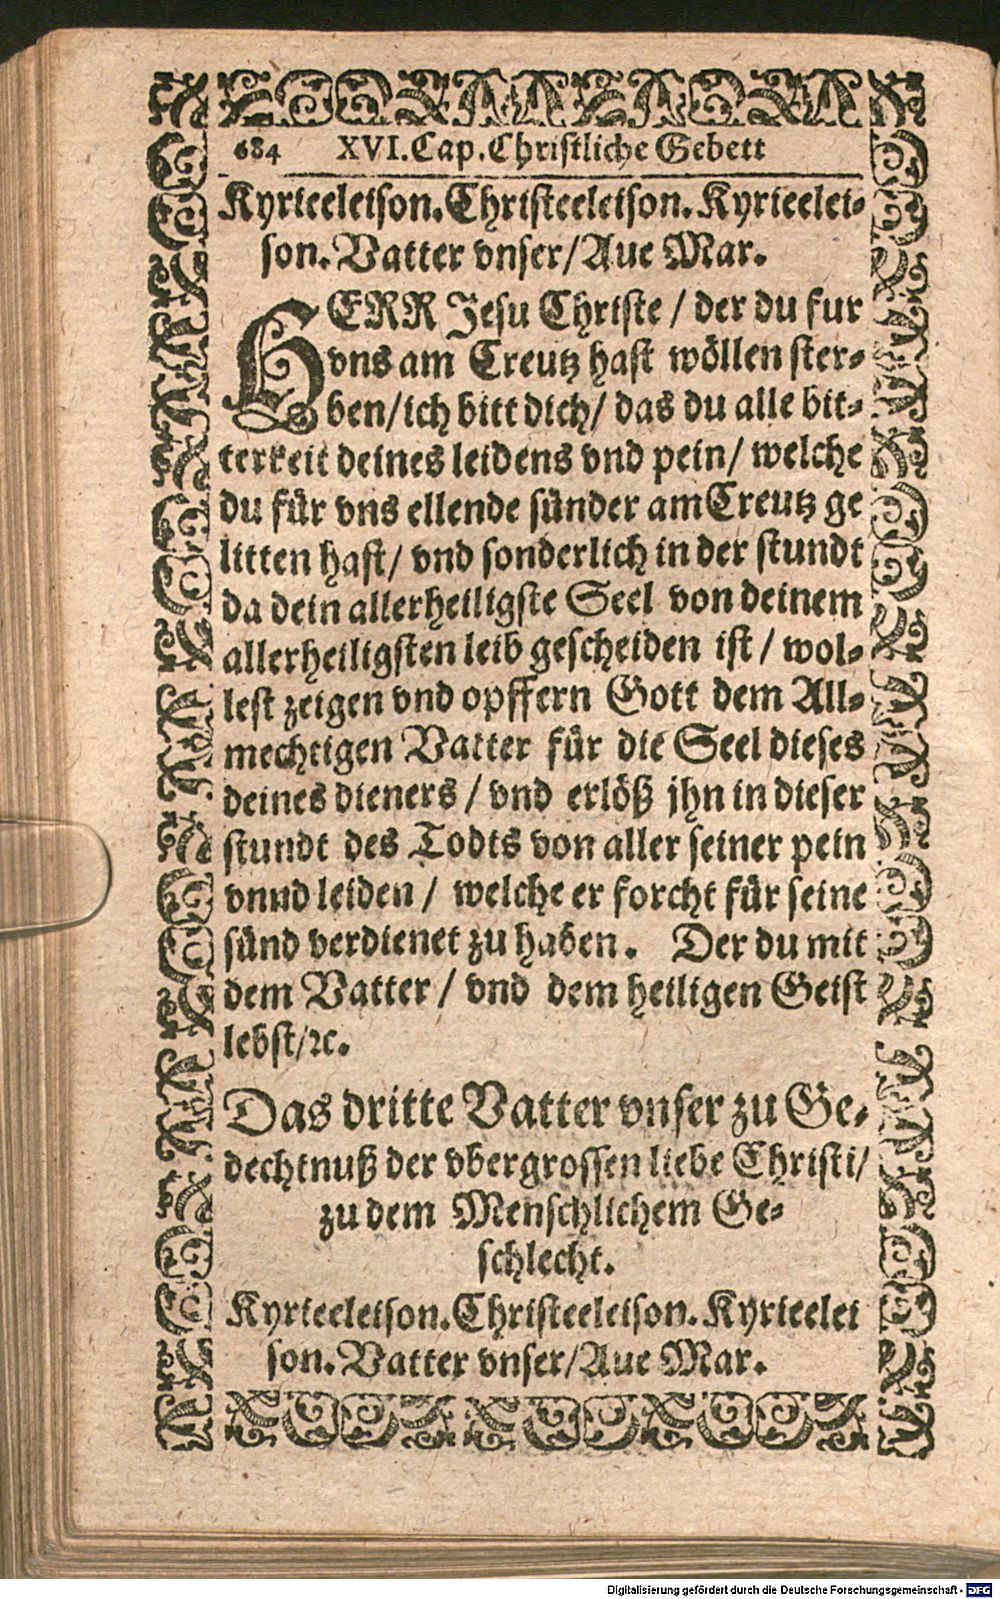 684 XVI. Cap. Christliche Gebett
Kyrieeleison. Christeeleison. Kyrieelei-
son. Vatter vnser/ Aue Mar.
HERR Jesu Christe / der du fur
vns am Creutz hast wöllen ster-
ben/ ich bitt dich/ das du alle bit-
terkeit deines leidens vnd pein/ welche
du für vns ellende sünder am Creutz ge
litten hast/ vnd sonderlich in der stundt
da dein allerheiligste Seel von deinem
allerheiligsten leib gescheiden ist / wol-
lest zeigen vnd opffern Gott dem All-
mechtigen Vatter für die Seel dieses
deines dieners / vnd erlöß jhn in dieser
stundt des Todts von aller seiner pein
vnnd leiden / welche er forcht für seine
sünd verdienet zu haben. Der du mit
dem Vatter / vnd dem heiligen Geist
lebst/ ꝛc.
Das dritte Vatter vnser zu Ge-
dechtnuß der vbergrossen liebe Christi/
zu dem Menschlichem Ge-
schlecht.
Kyrieeleison. Christeeleison. Kyrieelei
son. Vatter vnser/ Aue Mar.
Digitalisierung gefördert durch die Deutsche Forschungsgemeinschaft - DFG